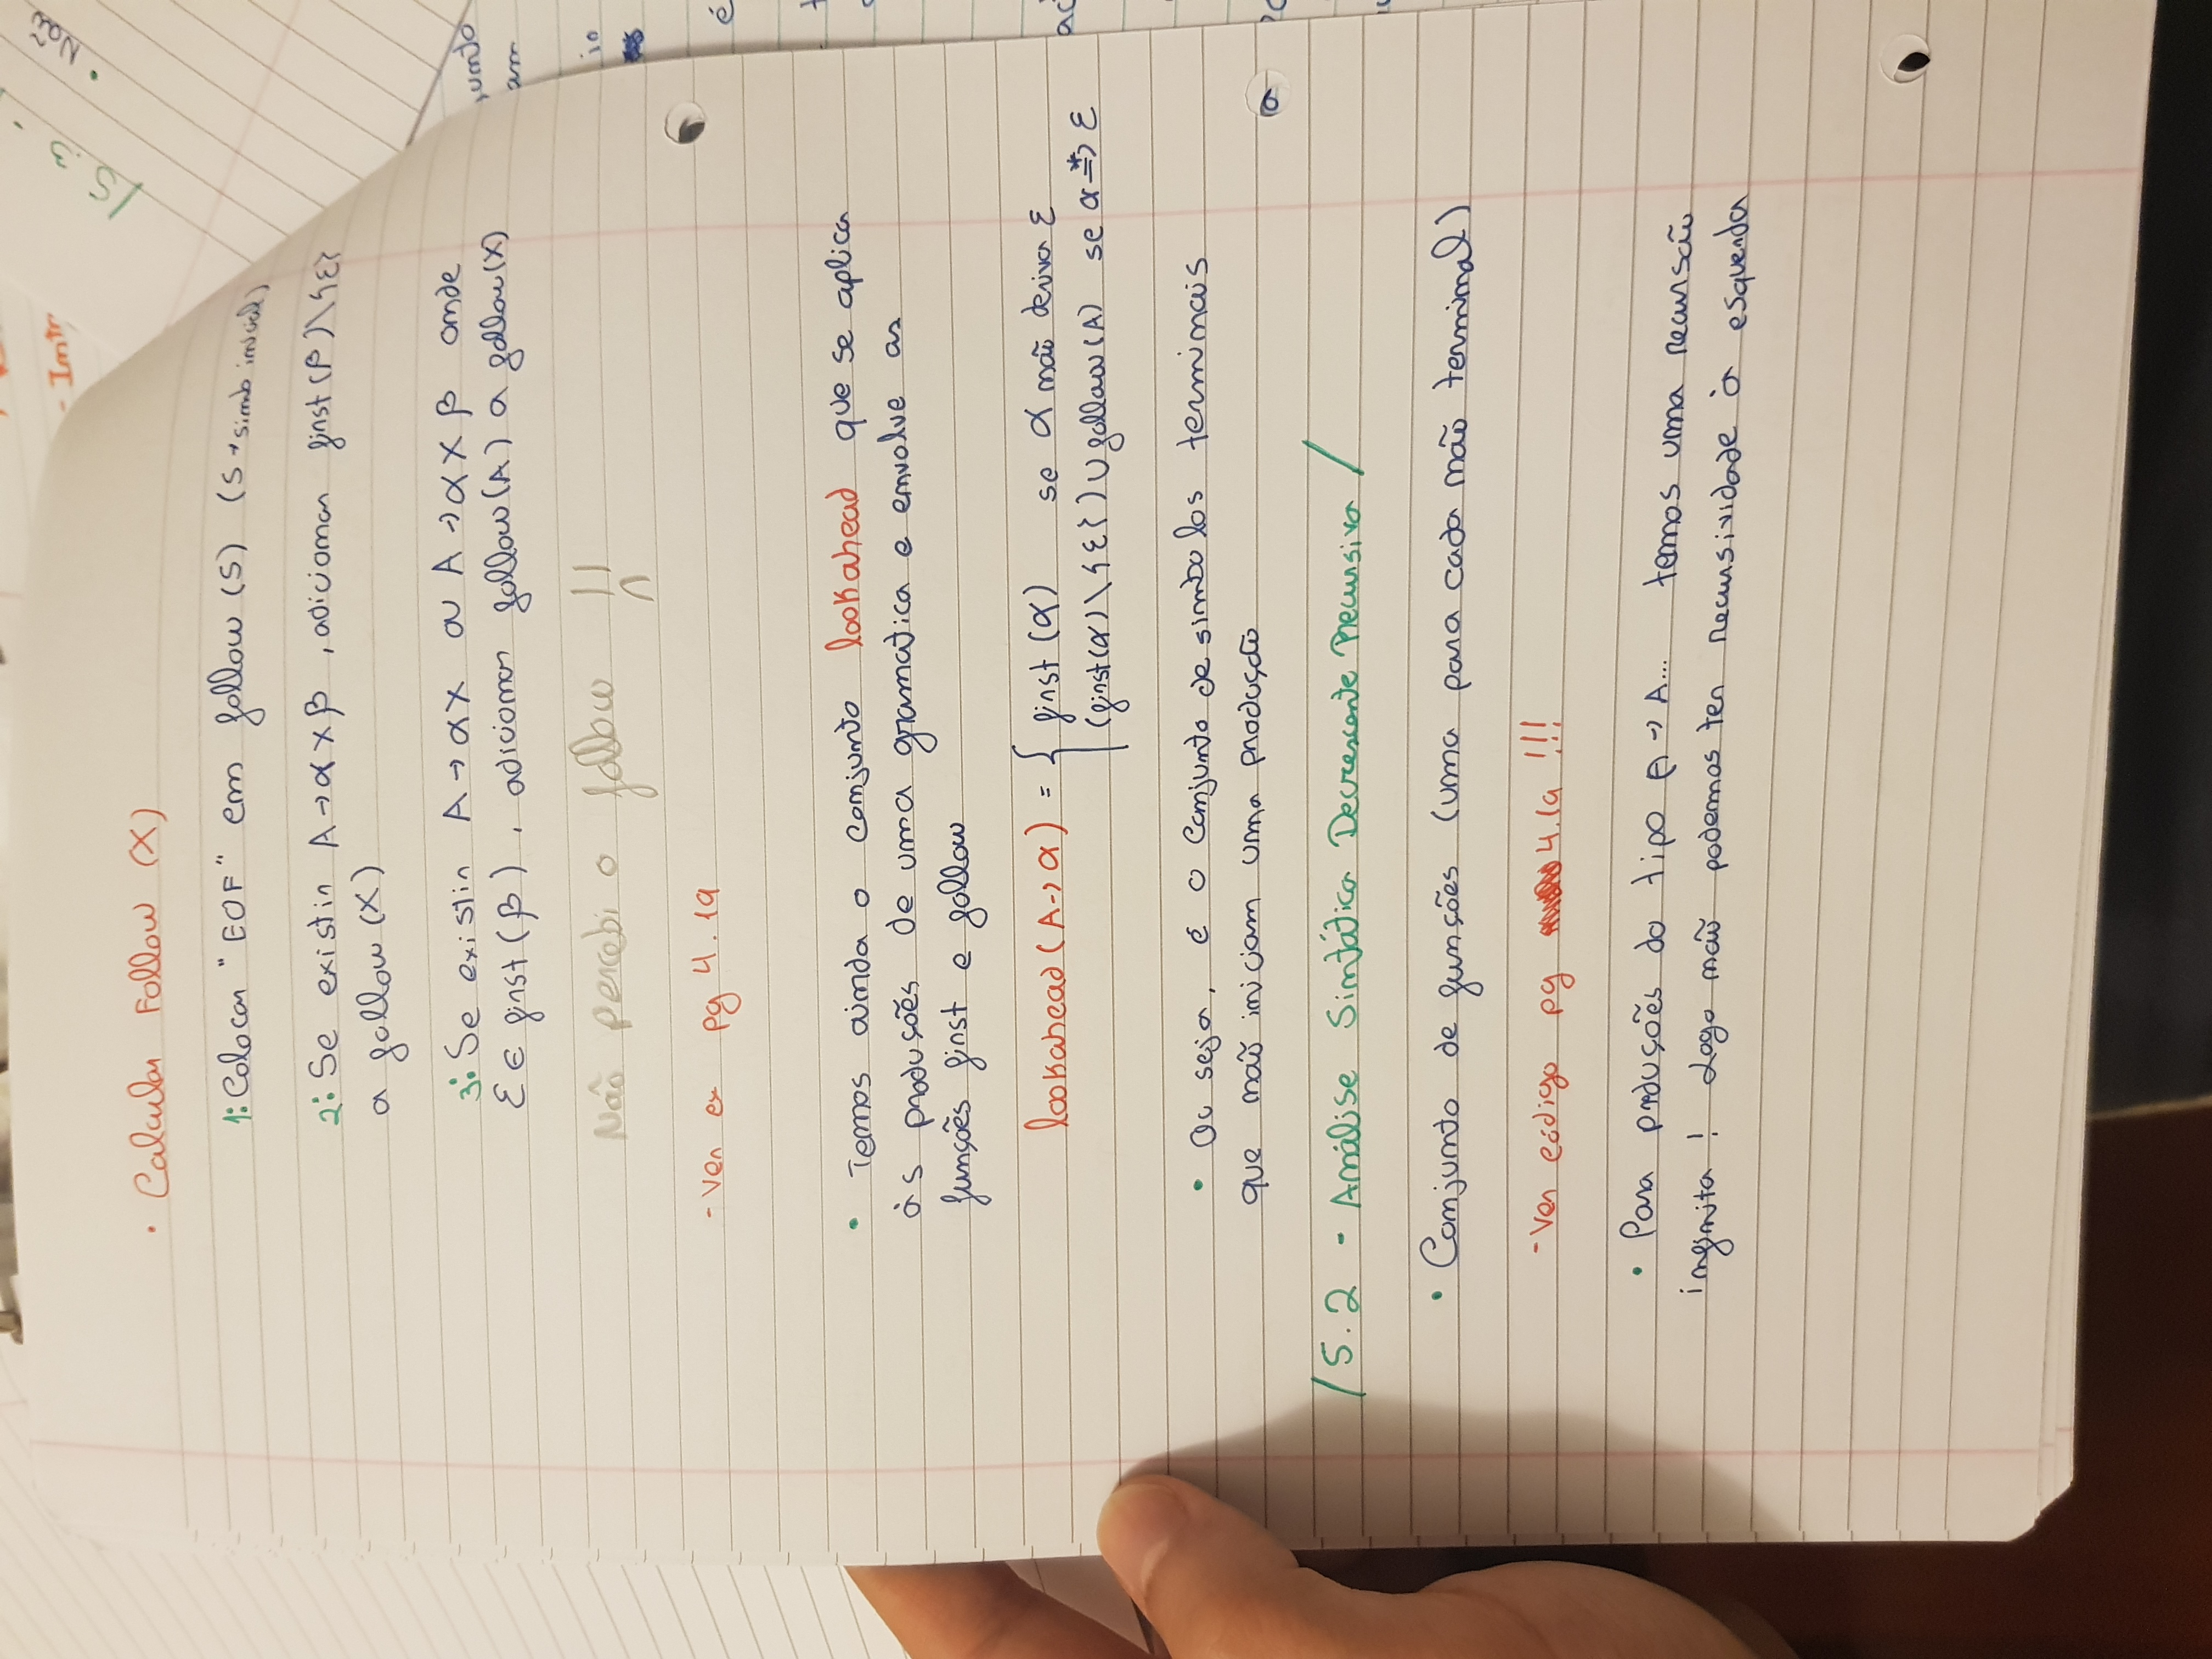 • Calcular Follow (X)
1: Colocar "EOF" em follow (S) (S → simb inicial)
2: Se existir A → α X β, adicionar first (β) \ {ε}
a follow (X)
3: Se existir A → α X ou A → α X β onde
ε ∈ first (β), adicionar follow (A) a follow (X)
Não percebi o follow !!
- Ver ex pg 4.19
• Temos ainda o conjunto lookahead que se aplica
às produções de uma gramatica e envolve as
funções first e follow
lookahead (A → α) = { first (α) se α não deriva ε
(first (α) \ {ε}) ∪ follow (A) se α =*> ε
• Ou seja, é o conjunto de simbolos terminais
que não iniciam uma produção
/ 5.2 - Análise Sintática Decrescente Recursiva /
• Conjunto de funções (uma para cada não terminal)
- Ver código pg 4.19 !!!
• Para produções do tipo A → A... temos uma recursão
infinita! Logo não podemos ter recursividade à esquerda
/ 5.3
• Não
- Intr
junto
am
in
é